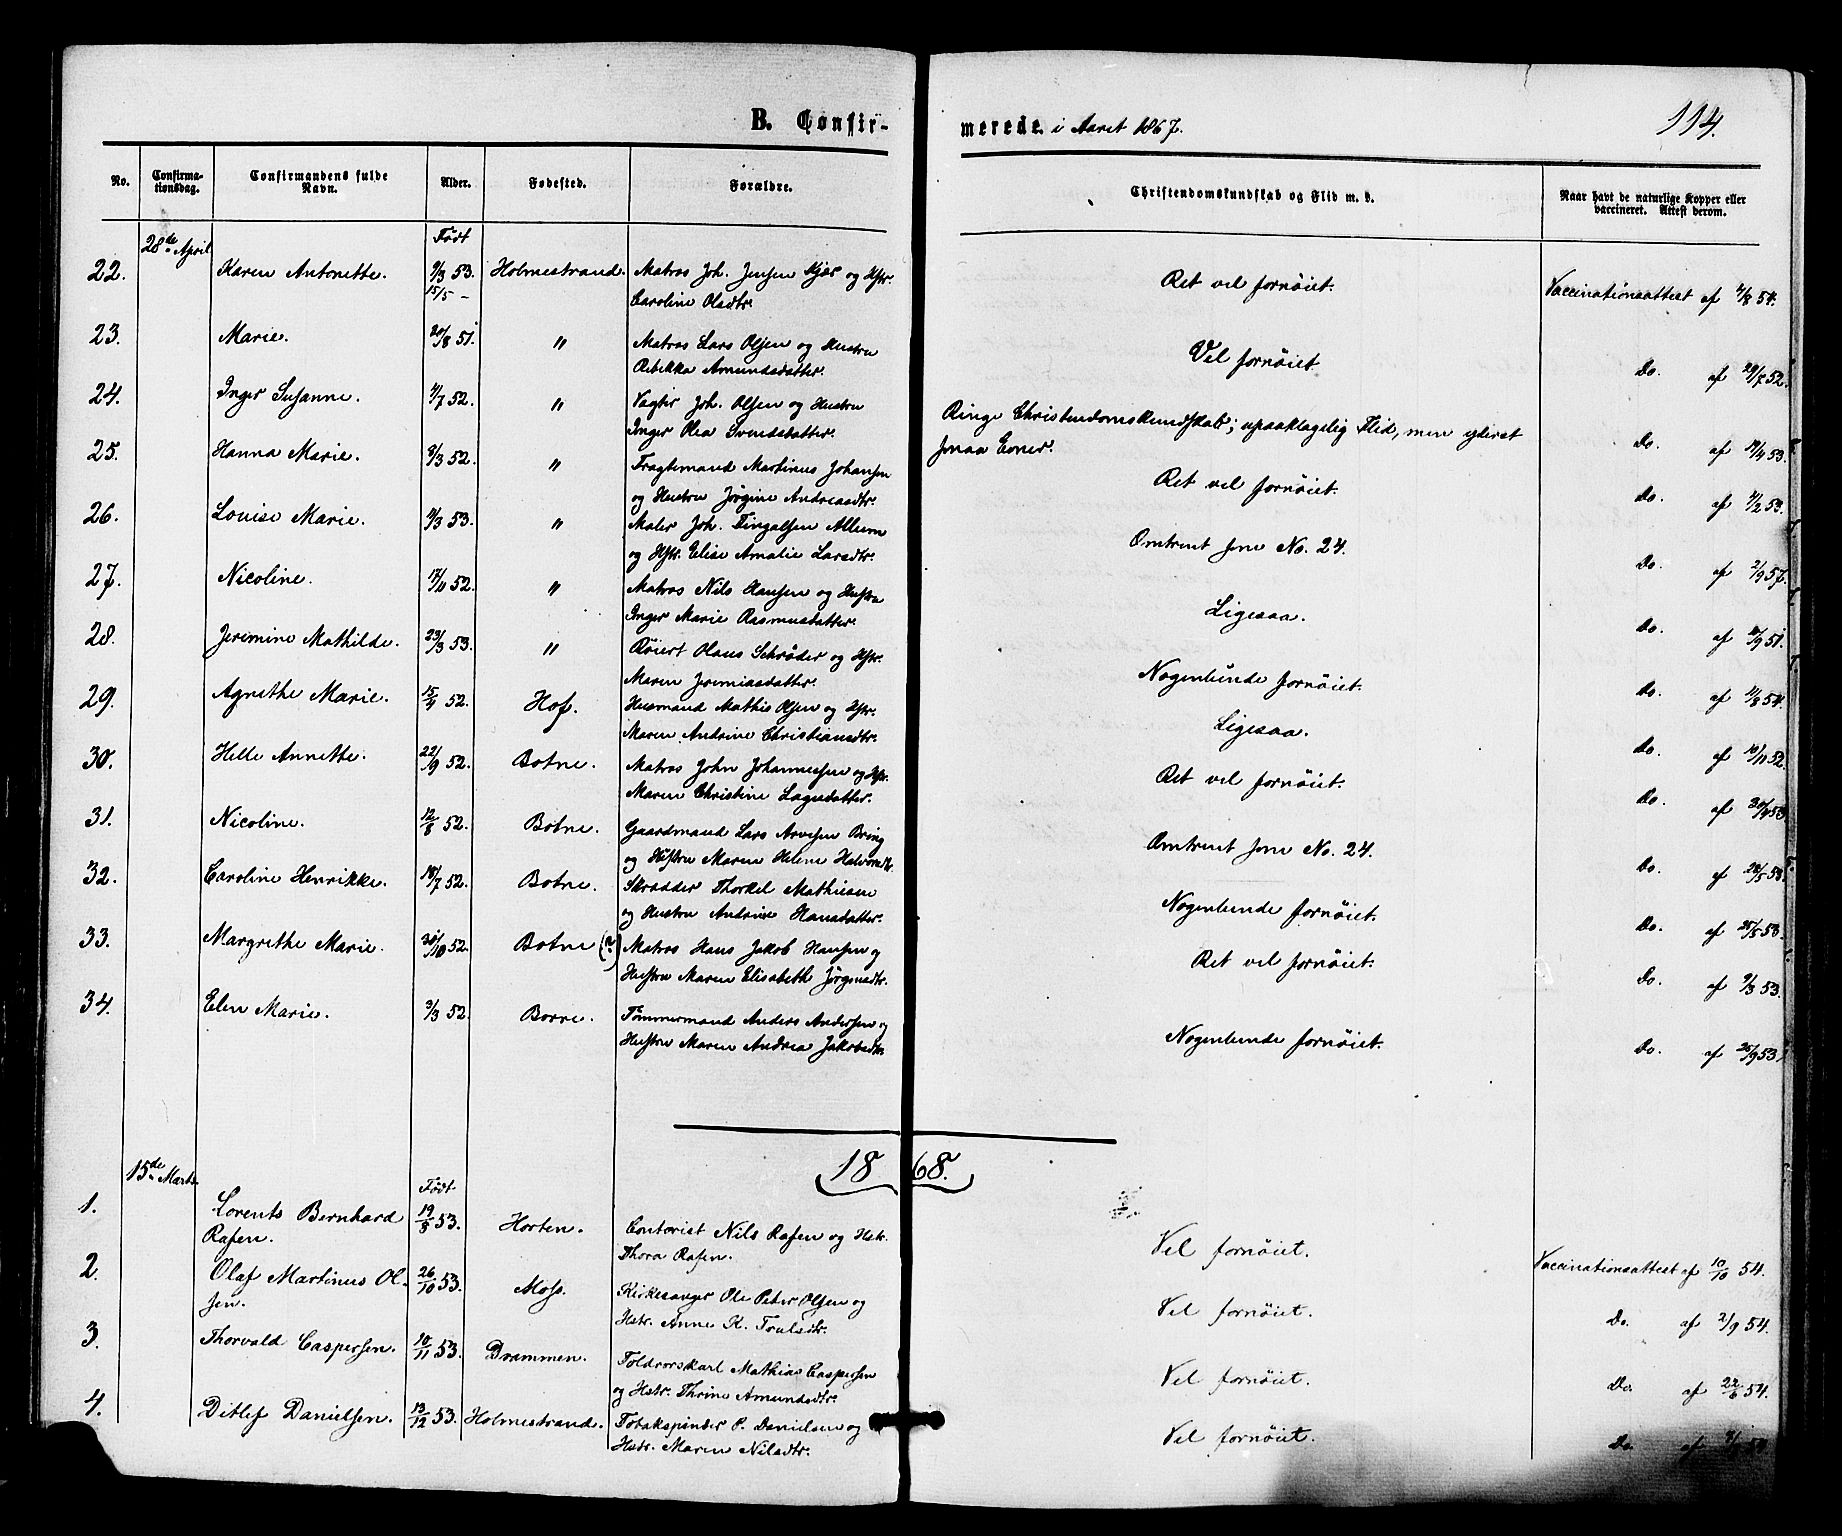 B. Confir- merede i Aaret 1867. 114.
No. Confirma-tionsdag. Confirmandens fulde Navn. Alder. Fødested. Forældre. Christendomskundskab og Flid m. v. Naar havt de naturlige Kopper eller vaccineret. Attest derom.
28de April Født
22. Karen Antonette. 9/3 53. Holmestrand. Matros Joh. Jensen Kjær og Hstr. Ret vel fornøiet. Vaccinationsattest af 54.
15/5 – Caroline Olsdtr.
23. Marie. 20/8 51. " Matros Lars Olsen og Hustru Vel fornøiet Do. af 29/7 52.
Rebekka Amundsdatter.
24. Inger Susanne. 4/7 52. " Joh. Olsen og Hustru Ringe Christendomskundskab; upaaklagelig Flid, men yderst Do. af 19/4 53.
Inger Olea Svendsdatter. smaa Evner.
25. Hanna Marie. 8/3 52. " Fragtemand Martinus Johansen Ret vel fornøiet. Do. af 53.
og Hustru Jørgine Andreasdtr.
26. Louise Marie. 53. " Maler Joh. Fingalsen Allum Omtrent som No. 24. Do. af 2/9 57.
og Hstr. Elise Amalie Larsdtr.
27. Nicoline. 17/11 52. " Matros Nils Hansen og Hustru Ligesaa. Do. af 51.
Inger Marie Rasmusdatter.
28. Jeremine Mathilde. 23/3 53. " Røiert Olaus Schrøder og Hstr. Nogenlunde fornøiet. Do. af 11/8 54.
Maren Jeremiasdatter.
29. Agnethe Marie. 15/4 52. Hof. Husmand Mathis Olsen og Hstr. Ligesaa. Do. af 19/11 52.
Maren Andrine Christiansdtr.
30. Helle Annette. 22/9 52. Botne. Matros John Johannessen og Hstr. Ret vel fornøiet. Do. af
Maren Christine Lagesdatter.
31. Nicoline. 12/8 52. Botne. Gaardmand Lars Arvesen Bring Omtrent som No. 24. Do. af 28/5 53.
og Hustru Maren Helene Halvorsdtr.
32. Caroline Henrikke. 18/7 52. Botne. Skrædder Thorkel Mathiesen Nogenlunde fornøiet. Do. af 53.
og Hustru Andrine Hansdatter.
33. Margrethe Marie. 30/10 52. Botne (?) Matros Hans Jakob Hansen og Ret vel fornøiet. Do. af 9/3 53.
Hustru Maren Elisabeth Jørgensdtr.
34. Elen Marie. 3/3 52. Borre. Tømmermand Anders Andersen og Nogenlunde fornøiet. Do. af 25/9 53.
Hustru Maren Andrea Jakobsdtr.
1868.
15de Marts. Født
1. Lorents Bernhard 19/3 53. Horten. Contorist Nils Rafen og Hstr. Vel fornøiet. Vaccinationsattest af 10/10 54.
Rafen. Thora Rafen.
2. Olaf Martinus Ol- 26/10 53. Moss. Kirkesanger Ole Peter Olsen og Vel fornøiet. Do. af 2/9 54.
sen. Hstr. Anne K. Trulsdtr.
3. Thorvald Caspersen. 10/11 53. Drammen. Toldrorskarl Mathias Caspersen Vel fornøiet. Do. af 22/6 54.
og Hstr. Thrine Amundsdtr.
4. Ditlef Danielsen. 13/12 53. Holmestrand. Tobakspinder P. Danielsen og Vel fornøiet. Do. af
Hstr. Maren Nilsdtr.